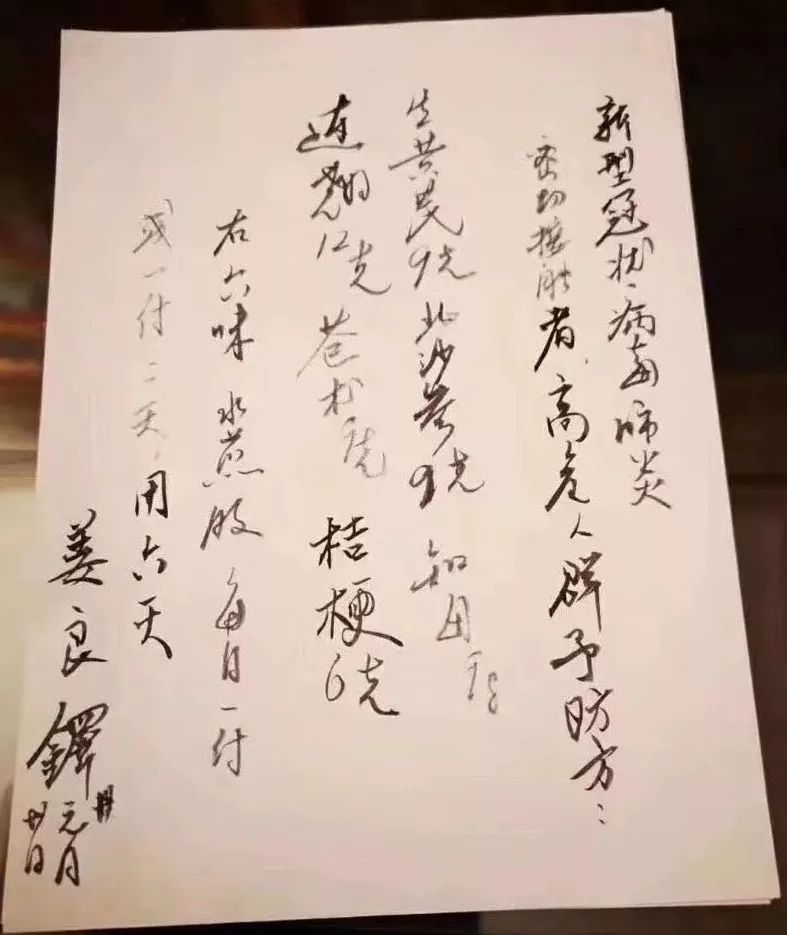 新型冠状病毒肺炎
密切接触者、高危人群予防方：
生黄芪9克 北沙参9克 知母
连翘12克 苍术 克 桔梗6克
右六味 水煎服 每日一付
或一付二天 用六天
姜良铎
元月
日